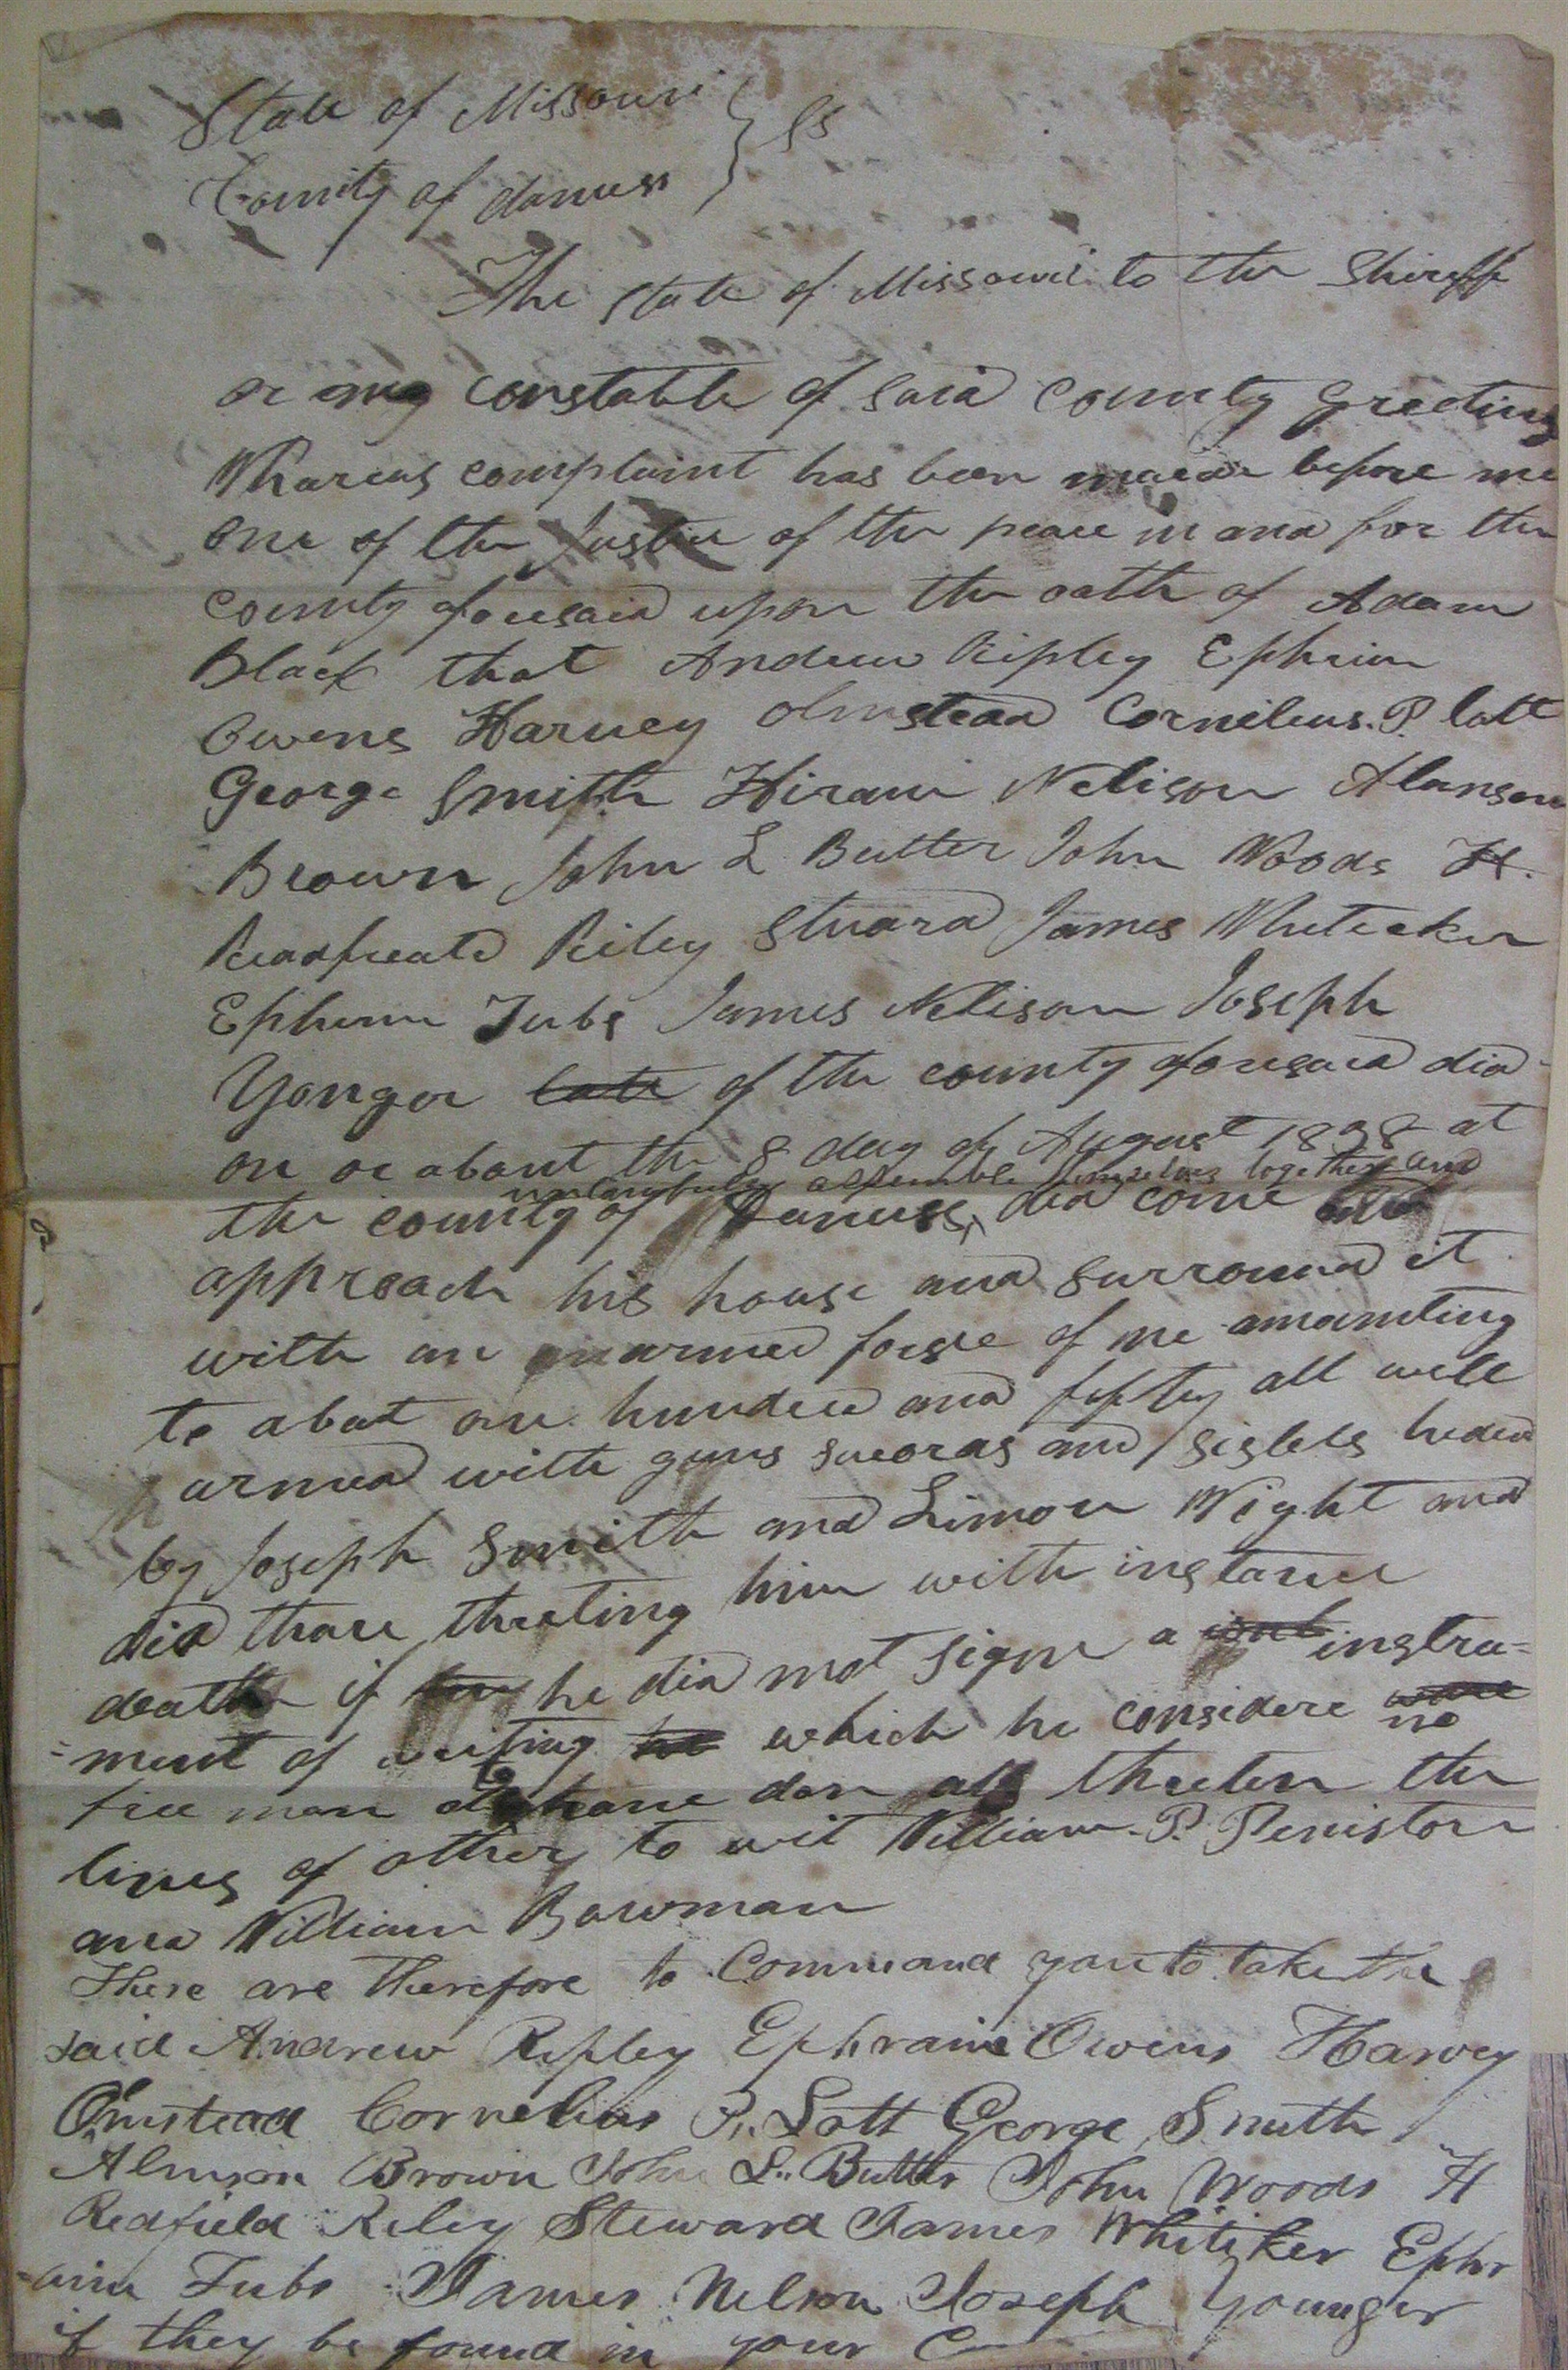 State of Missouri } SS
County of daviess
The state of Missouri to the Shireff
or any constable of said county Greeting
Whareas complaint has been maide before me
one of the Justice of the peace in and for the
county aforesaid upon the oath of Adam
Black that Andrew Ripley Ephrim
Owens Harvey Olmstead Cornileus. P. lott
George Smith Hiram Nelison Alanson
Brown John L Butler John Woods H.
Readfeald Riley Stuard James Whiteaker
Ephrim Tubs James Nelison Joseph
Yonger late of the county aforesaid did
on or about the 8 day of August 1838 at
unlawfully assemble themselves together and
the county of Daviess did come
approach his house and surround it
with an armed forse of me amounting
to about one hundred and fifty all well
armed with guns sweords and pistels heded
by Joseph Smith and Limon Wight and
did thare threting him with instance
death if he did not signe a instru=
=ment of writing which he considere no
free man to have don also threten the
lives of others to wit William. P. Peniston
and William Bowman
These are therefore to Command you to take the
said Andrew Ripley Ephraim Owens Harvey
Omstead Cornelius P. Lott George Smith
Almson Brown John L. Butler John Woods H
Redfield Riley Steward James Whitiker Ephr
=aim Tubs James Nelson Joseph Younger
if they be found in your